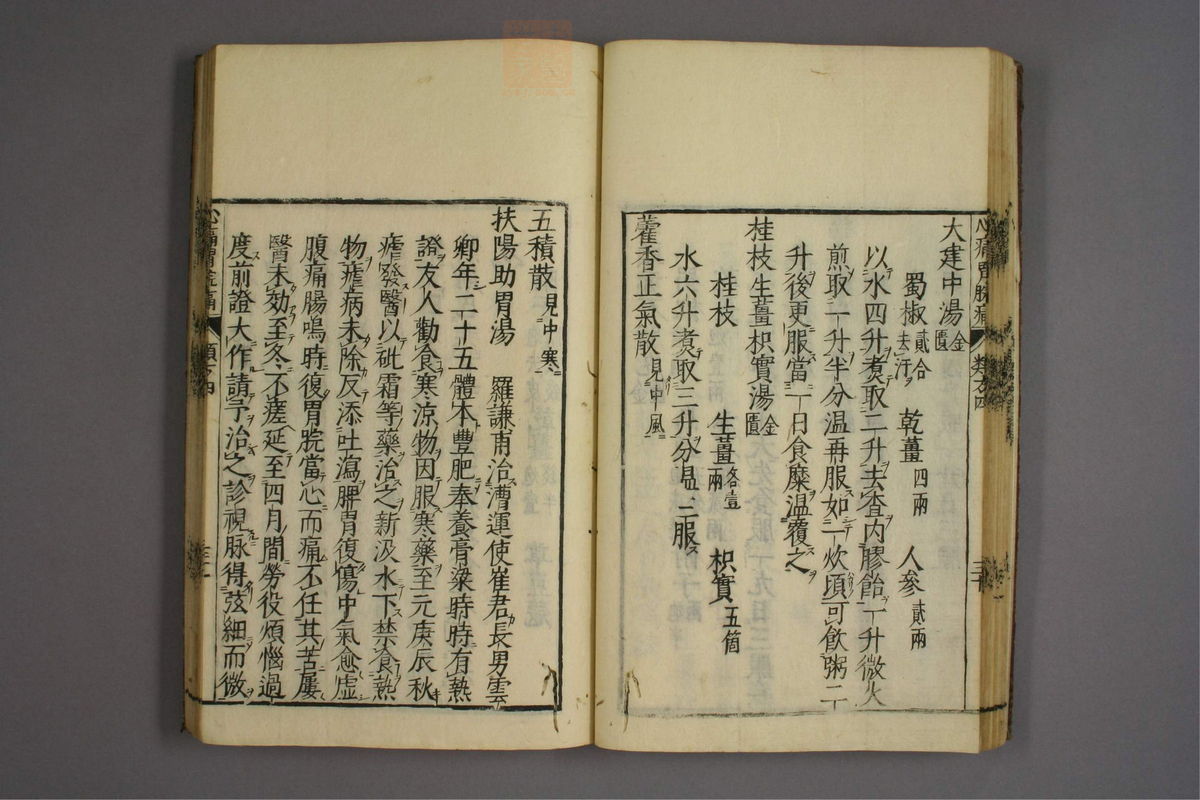 大建中湯 金匱
蜀椒 貳合去汗 乾薑 四兩 人參 貳兩
以水四升煮取二升去查内膠飴一升微火
煎取一升半分温再服如一炊頃可飲粥二
升後更服當一日食糜温覆之
桂枝生薑枳實湯 金匱
桂枝 生薑 各壹兩 枳實 五箇
水六升煮取三升分温三服
藿香正氣散 見中風
心痛胃脘痛
五積散 見中寒
扶陽助胃湯 羅謙甫治漕運使崔君長男雲
卿年二十五體本豐肥奉養膏粱時時有熱
證友人勸食寒涼物因服寒藥至元庚辰秋
瘧發醫以砒霜等藥治之新汲水下禁食熱
物瘧病未除反添吐瀉脾胃復傷中氣愈虚
腹痛腸鳴時復胃脘當心而痛不任其苦屢
醫未効至冬不瘥延至四月間勞役煩惱過
度前證大作請予治之診視脉得弦細而微
心痛胃脘痛